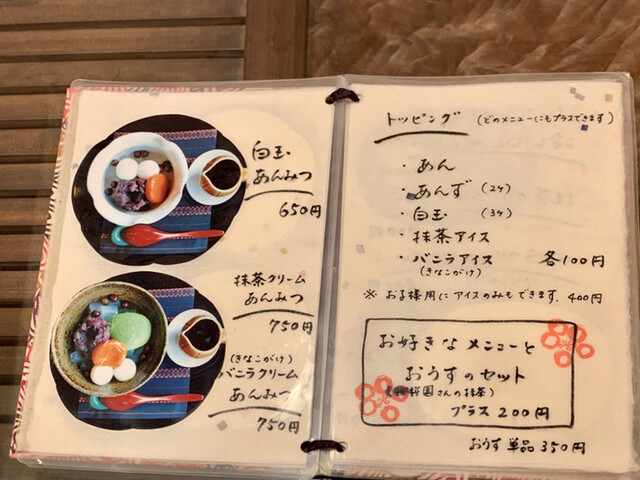 白玉
あんみつ
650円
抹茶クリーム
あんみつ
750円
(きなこがけ)
バニラクリーム
あんみつ
750円
トッピング (どのメニューにもプラスできます)
・あん
・あんず (2ケ)
・白玉 (3ケ)
・抹茶アイス
・バニラアイス 各100円
(きなこがけ)
※ お子様用にアイスのみもできます。400円
お好きなメニューと
おうすのセット
園さんの抹茶)
プラス200円
おうす 単品 350円